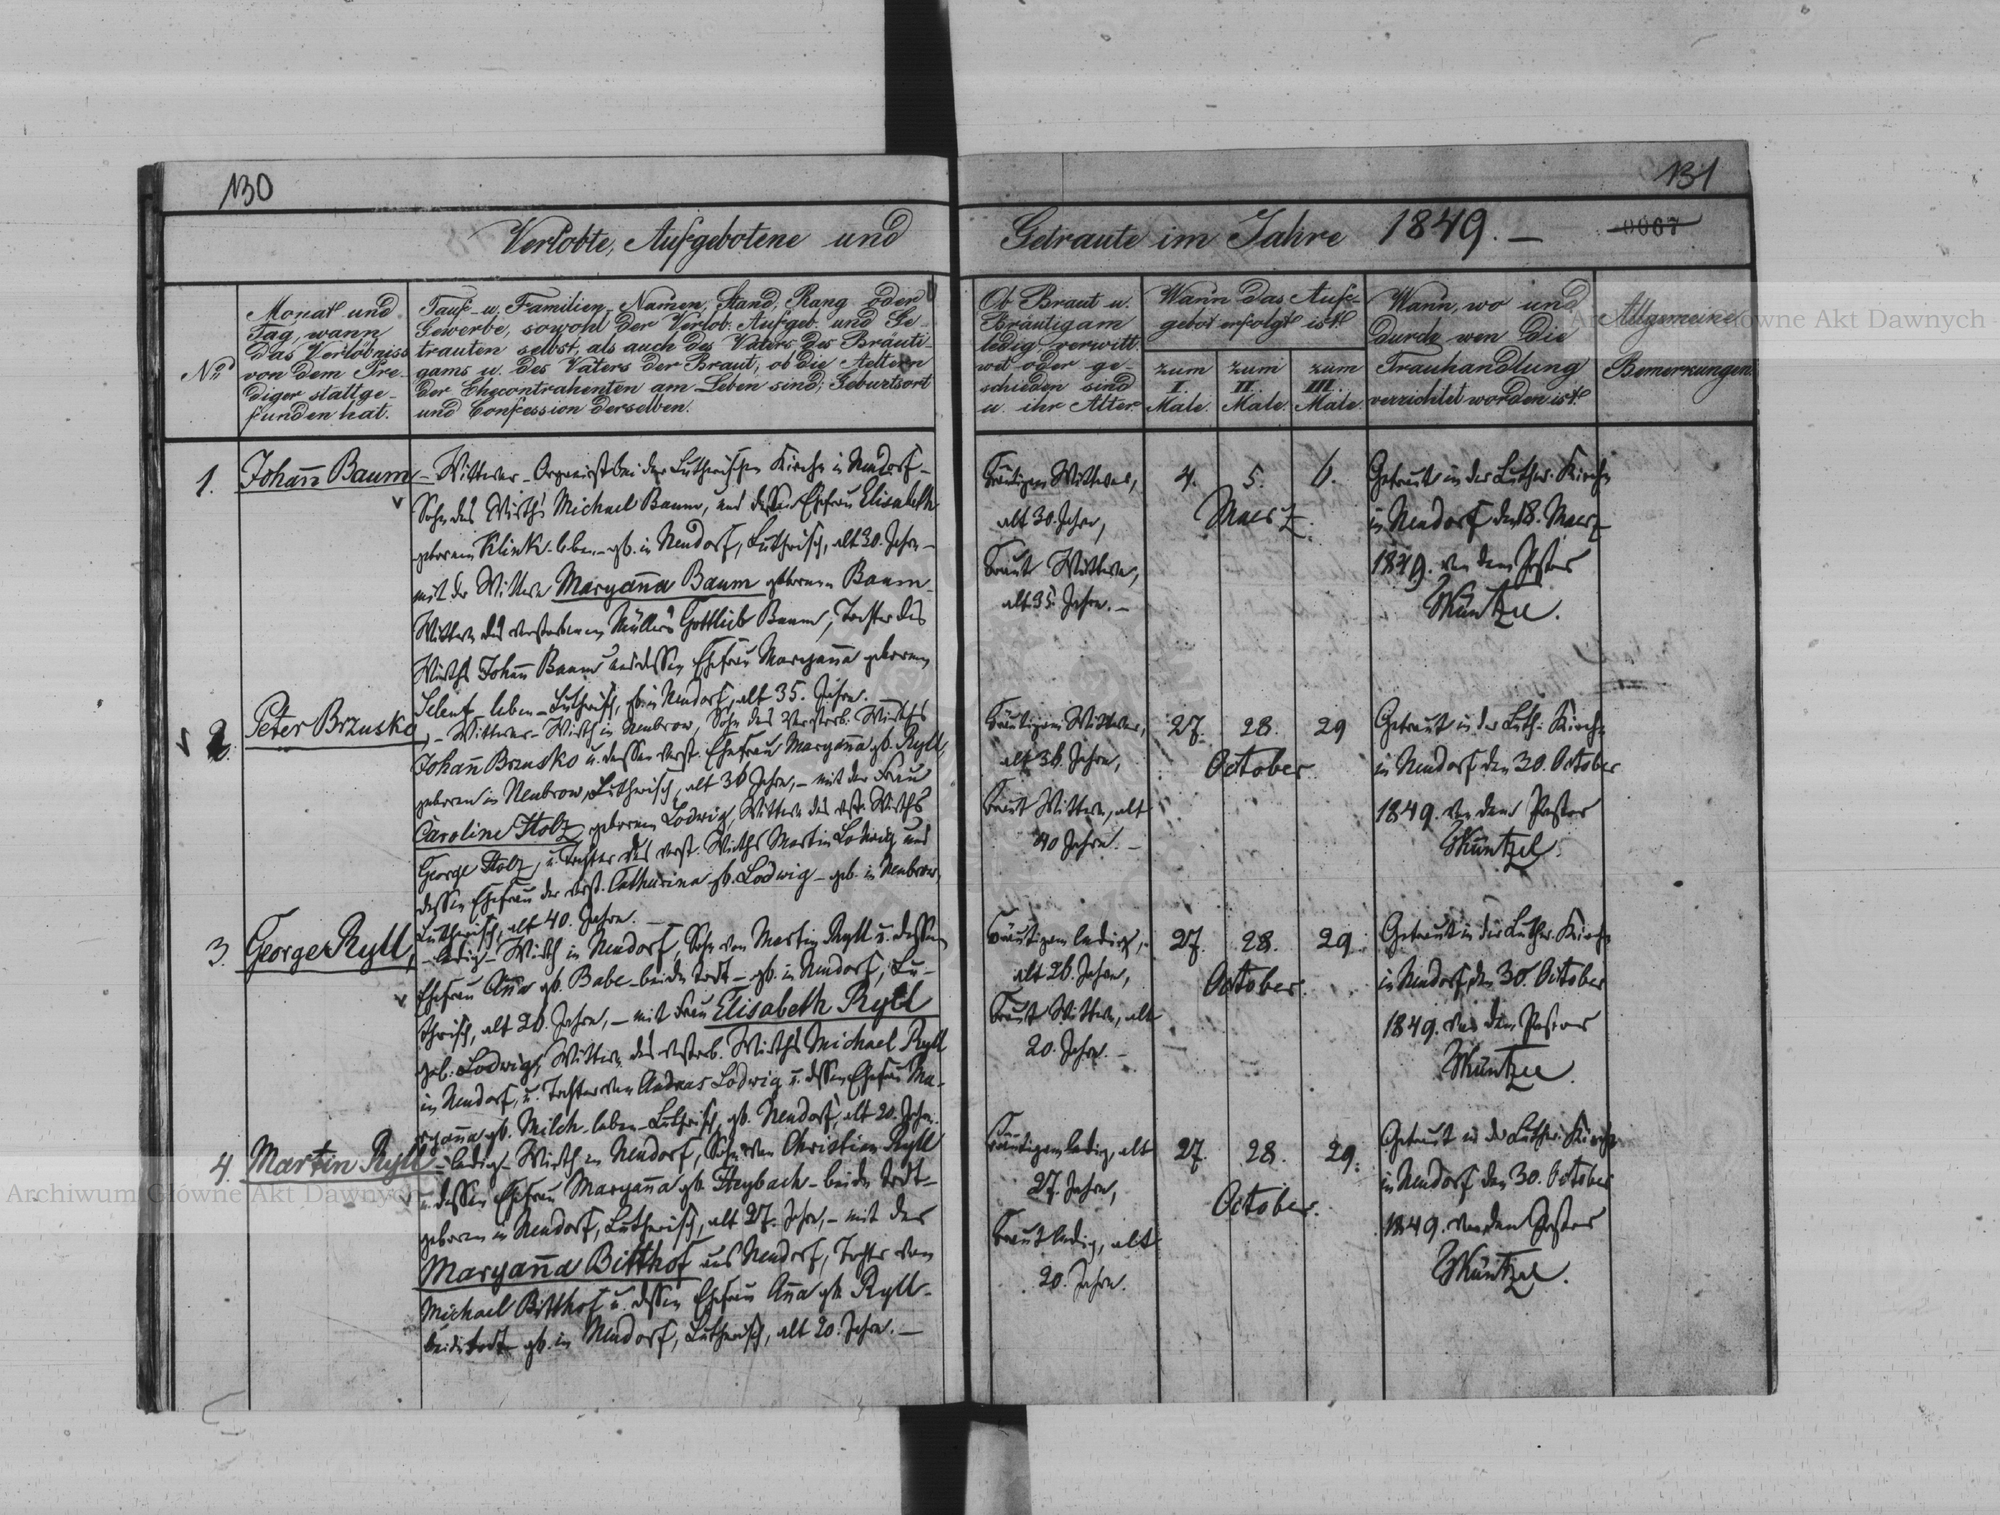 130
131
Verlobte, Aufgebotene und
Getraute im Jahre 1849. —
0067
No
Monat und
Tag, wann
das Verlöbniss
von dem Pre-
diger stattge-
funden hat.
Tauf- u. Familien-Namen, Stand, Rang oder
Gewerbe, sowohl der Verlob. Aufgeb. und Ge-
trauten selbst, als auch des Vaters des Bräuti-
gams u. des Vaters der Braut, ob die Aeltern
der Ehecontrahenten am Leben sind; Geburtsort
und Confession derselben.
Ob Braut u.
Bräutigam
ledig verwitt-
wet oder ge-
schieden sind
u. ihr Alter
Wann das Auf-
gebot erfolgt ist.
zum
I.
Male.
zum
II.
Male.
zum
III.
Male.
Wann, wo und
durch wen die
Trauhandlung
verrichtet worden ist.
Allgemeine
Bemerkungen.
1. Johan̄ Baum – Wittwer – Organist bei der Lutherischen Kirche in Neudorf –
Sohn des Wirths Michael Baum, und dessen Ehefrau Elisabeth
geborenen Klink – leben – gb. in Neudorf, Lutherisch, alt 30. Jahre –
mit der Wittwe Maryan̄a Baum geborenen Baum
Wittwe des verstorbenen Müllers Gottlieb Baum, Tochter des
Wirths Johan̄ Baum und dessen Ehefrau Maryan̄a geborenen
leben – Lutherisch, gb. in Neudorf, alt 35. Jahre.
Bräutigam Wittwer,
alt 30. Jahre,
Braut Wittwe,
alt 35. Jahre. –
4. 5. 6.
Maerz.
Getraut in der Luther. Kirche
in Neudorf den 8. Maerz
1849. von dem Pastor
2. Peter Brzusko, – Wittwer – Wirth in Neubrow, Sohn des verstorb. Wirths
Johan̄ Brzusko u. dessen verst. Ehefrau Maryan̄a gb. Ryll,
geboren in Neubrow, Lutherisch, alt 36 Jahre, – mit der Frau
Caroline Holz geborenen Lodwig, Wittwe des verst. Wirths
George Holz, u. Tochter des verst. Wirths Martin Lodwig und
dessen Ehefrau der verst. Catharina gb. Lodwig – geb. in Neubrow,
Lutherisch, alt 40. Jahre. –
Bräutigam Wittwer,
alt 36. Jahre,
Braut Wittwe, alt
40 Jahre. –
27. 28. 29
October
Getraut in der Luth. Kirche
in Neudorf den 30. October
1849. von dem Pastor
3. George Ryll, – ledig – Wirth in Neudorf, Sohn von Martin Ryll u. dessen
Ehefrau An̄a gb. Babe – beide todt – gb. in Neudorf, Lu-
therisch, alt 26. Jahre, – mit Frau Elisabeth Ryll
geb. Lodwig, Wittwe des verstorb. Wirths Michael Ryll
in Neudorf, u. Tochter von Andreas Lodwig u. dessen Ehefrau Ma-
ryan̄a gb. Milch – leben – Lutherisch, gb. Neudorf, alt 20. Jahre.
Bräutigam ledig,
alt 26. Jahre,
Braut Wittwe, alt
20. Jahre. –
27. 28. 29.
October.
Getraut in der Luther. Kirche
in Neudorf den 30 October
1849. von dem Pastor
4. Martin Ryll – ledig – Wirth in Neudorf, Sohn von Christian Ryll
u. dessen Ehefrau Maryan̄a gb. Heybach – beide todt –
geboren in Neudorf, Lutherisch, alt 27. Jahre, – mit der
Maryan̄a Bitthof aus Neudorf, Tochter von
Michael Bitthof u. dessen Ehefrau An̄a gb. Ryll –
beide todt – gb. in Neudorf, Lutherisch, alt 20. Jahre. —
Bräutigam ledig, alt
27. Jahre,
Braut ledig, alt
20. Jahre.
27. 28. 29.
October.
Getraut in der Luther. Kirche
in Neudorf den 30. October
1849. von dem Pastor
Archiwum Główne Akt Dawnych
Archiwum Główne Akt Dawnych